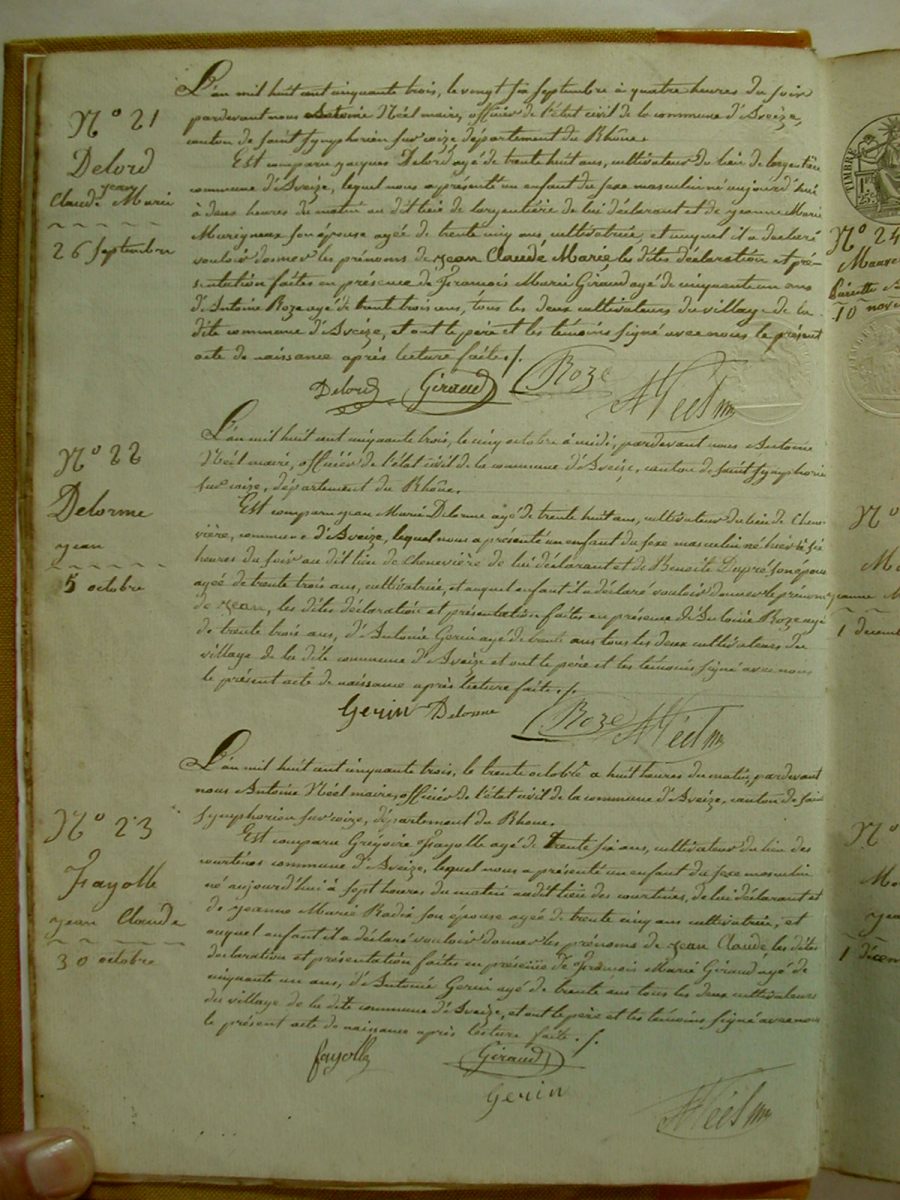 N° 21
Delord
jean
Claude Marie
26 Septembre
L'an mil huit cent cinquante trois, le vingt six septembre à quatre heures du soir
pardevant nous Antoine Néel maire, officier de l'état civil de la commune d'Aveize,
canton de saint Symphorien sur coize, département du Rhône.
Est comparu jacques Delord agé de trente huit ans, cultivateur du lieu de largentière
commune d'Aveize, lequel nous a présenté un enfant du sexe masculin né aujourd'hui
à deux heures du matin au dit lieu de largentière de lui déclarant et de jeanne Marie
son épouse agée de trente cinq ans cultivatrice, et auquel il a declaré
vouloir donner les prénoms de jean Claude Marie, les dites déclaration et pré-
sentation faites en présence de François Marie Giraud agé de cinquante un ans
d'Antoine Roze agé de trente trois ans, tous les deux cultivateurs du village de la
dite commune d'Aveize, et ont le père et les témoins signé avec nous le présent
acte de naissance après lecture faite./.
Delord Giraud Roze
ANéel m
N° 22
Delorme
jean
5 octobre
L'an mil huit cent cinquante trois, le cinq octobre à midi, pardevant nous Antoine
Néel maire, officier de l'état civil de la commune d'Aveize, canton de saint Symphorien
sur coize, département du Rhône.
Est comparu jean Marie Delorme agé de trente huit ans, cultivateur du lieu de chene-
vière, commune d'Aveize, lequel nous a présenté un enfant du sexe masculin né hier à six
heures du soir au dit lieu de chenevière de lui déclarant et de Benoite Dupré son épouse
agée de trente trois ans, cultivatrice, et auquel enfant il a déclaré vouloir donner le prénom
de jean, les dites déclaration et présentation faites en présence d'Antoine Roze agé
de trente trois ans, d'Antoine Gerin agé de trente ans tous les deux cultivateurs du
village de la dite commune d'Aveize et ont le père et les témoins signé avec nous
le présent acte de naissance après lecture faite./.
Gerin Delorme Roze ANéel m
N° 23
Fayolle
jean Claude
30 octobre
L'an mil huit cent cinquante trois, le trente octobre a huit heures du matin, pardevant
nous Antoine Néel maire, officier de l'état civil de la commune d'Aveize, canton de saint
Symphorien sur coize, département du Rhône.
Est comparu Grégoire Fayolle agé de trente six ans, cultivateur du lieu des
courtines commune d'Aveize, lequel nous a présenté un enfant du sexe masculin
né aujourd'hui à sept heures du matin audit lieu des courtines, de lui déclarant et
de jeanne Marie Radix son épouse agée de trente cinq ans cultivatrice, et
auquel enfant il a déclaré vouloir donner les prénoms de jean Claude, les dites
déclaration et présentation faites en présence de François Marie Giraud agé de
cinquante un ans, d'Antoine Gerin agé de trente ans tous les deux cultivateurs
du village de la dite commune d'Aveize, et ont le père et les témoins signé avec nous
le présent acte de naissance après lecture faite./.
fayolle Giraud
Gerin
ANéel m
TIMBRE
N° 24
10 nove
N°
1 decem
N°
1 décem